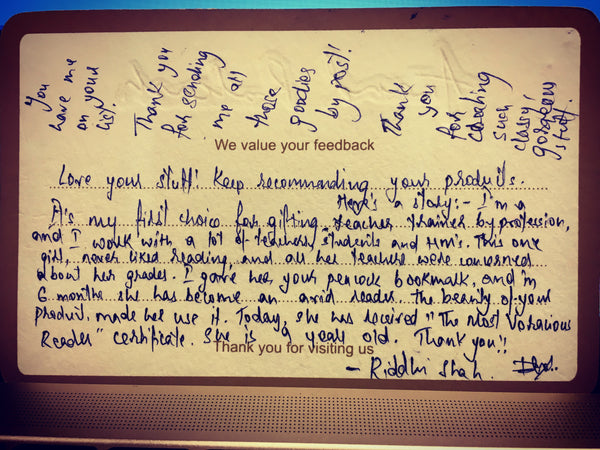 You
have me
on your
list.
Thank you
for sending
me all
those
goodies
by post!
Thank
you
for
creating
such
classy,
gorgeous
stuff.
We value your feedback
Love your stuff! Keep recommending your products.
It's my first choice for gifting. Here's a story:- I'm a teacher trainer by profession,
and I work with a lot of teachers, students and HM's. This one
girl, never liked reading, and all her teachers were concerned
about her grades. I gave her your peacock bookmark, and in
6 months she has become an avid reader. The beauty of your
product, made her use it. Today, she has received "The Most Voracious
Reader" certificate. She is 9 years old. Thank you!!
Thank you for visiting us
- Riddhi Shah.